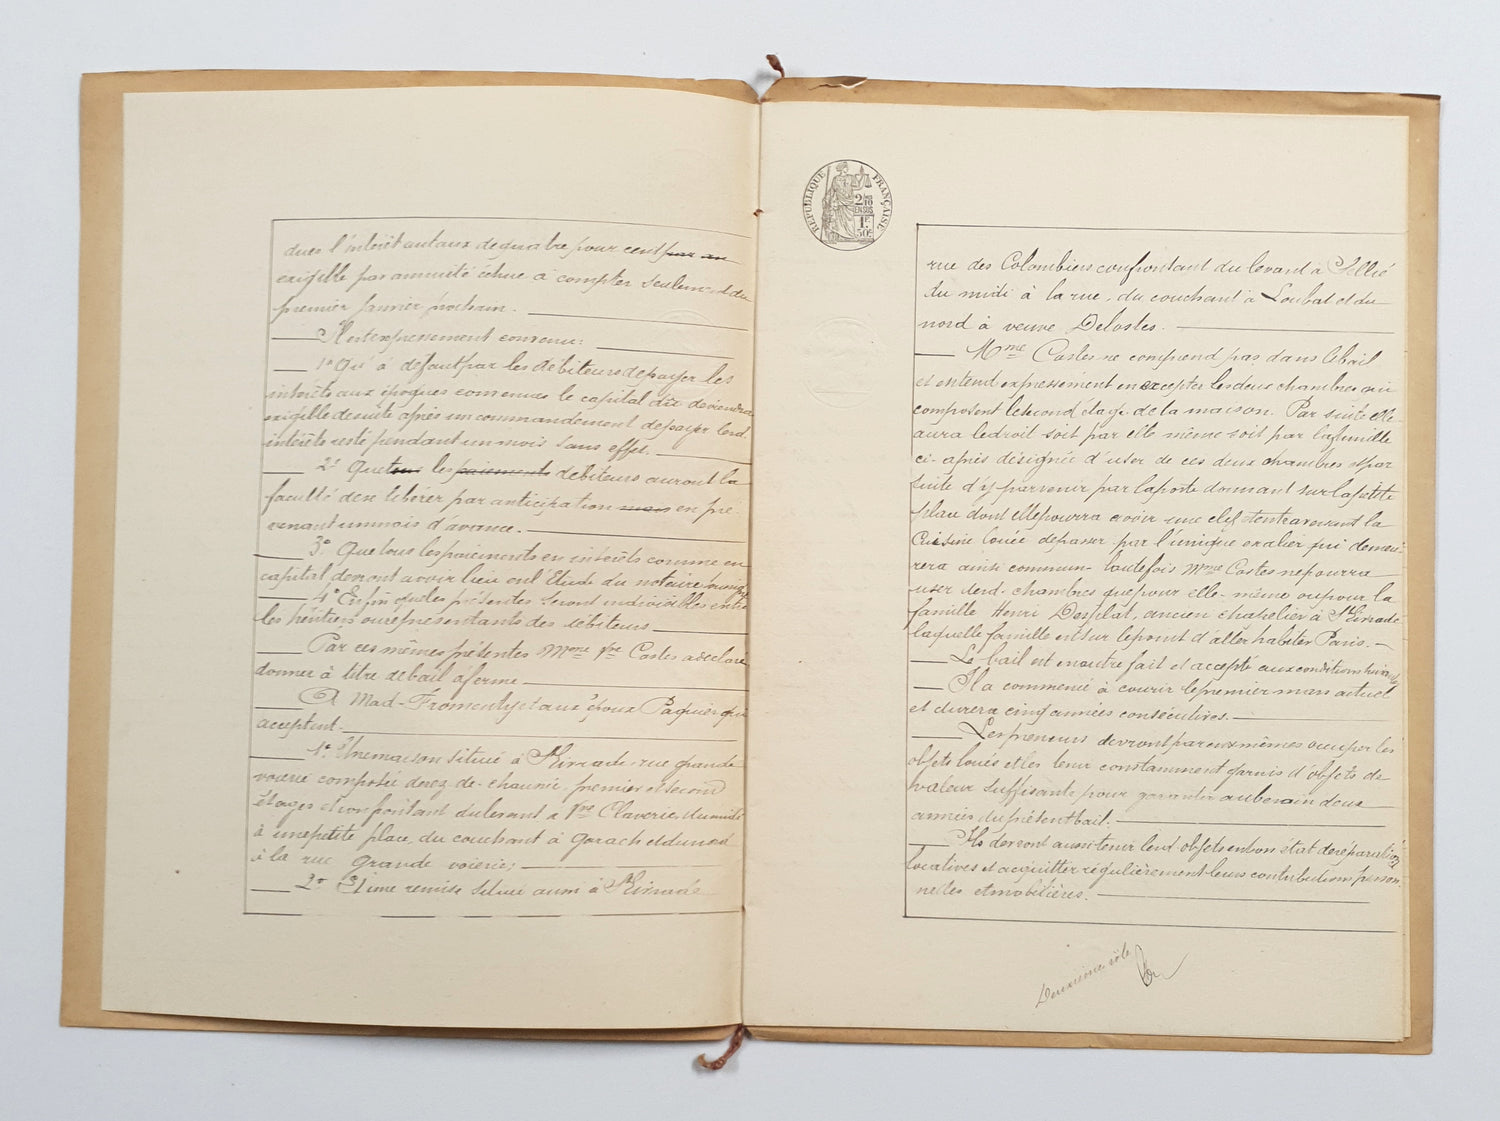 dues l'intérêt au taux de quatre pour cent par an
exigible par annuité échue à compter seulement du
premier Janvier prochain.
Il est expressement convenu:
1º Qu'à défaut par les débiteurs de payer les
intérêts aux époques convenues le capital dû deviendra
exigible de suite après un commandement de payer lesd.
intérêts resté pendant un mois sans effet.
2º Que tous les paiements débiteurs auront la
faculté de se libérer par anticipation mais en pré
venant un mois d'avance.
3º Que tous les paiements en intérêts comme en
capital devront avoir lieu en l'Etude du notaire soussigné
4º Enfin que les présentes seront indivisibles entre
les héritiers ou représentants des débiteurs
Par ces mêmes présentes Mme Vve Castes a déclaré
donner à titre de bail à ferme
A Mad. Fromenty et aux époux Paquier qui
acceptent.
1º Une maison située à St Girmade rue grande
voierie composée de rez-de-chaunée, premier et second
étages et confrontant du levant à Vve Claverie, du midi
à une petite place, du couchant à Garach et du nord
à la rue grande voierie;
2º Une remise située aussi à
RÉPUBLIQUE FRANÇAISE
2/10
EN SUS
1F
50c
rue des Colombiers confrontant du levant à Sellié
du midi à la rue, du couchant à Loubat et du
nord à veuve Delostes.
Mme Castes ne comprend pas dans le bail
et entend expressement en excepter les deux chambres qui
composent le second étage de la maison. Par suite elle
aura le droit soit par elle même soit par la famille
ci-après désignée d'user de ces deux chambres et par
suite d'y parvenir par la porte donnant sur la petite
place dont elle pourra avoir une clef et en traversant la
cuisine louée de passer par l'unique escalier qui demeu-
rera ainsi commun. toutefois Mme Castes ne pourra
user desd. chambres que pour elle-même ou pour la
famille Henri Desplat, ancien chapelier à
laquelle famille est sur le point d'aller habiter Paris.
Le bail est en outre fait et accepté aux conditions suivantes
Il a commencé à courir le premier mars actuel
et durera cinq années consécutives.
Les preneurs devront par eux mêmes occuper les
objets loués et les tenir constamment garnis d'objets de
valeur suffisante pour garantir au besoin deux
années du présent bail.
Ils devront aussi tenir lesd. objets en bon état de réparations
locatives et acquitter régulièrement leurs contributions person
nelles et mobilières.
Deuxième rôle